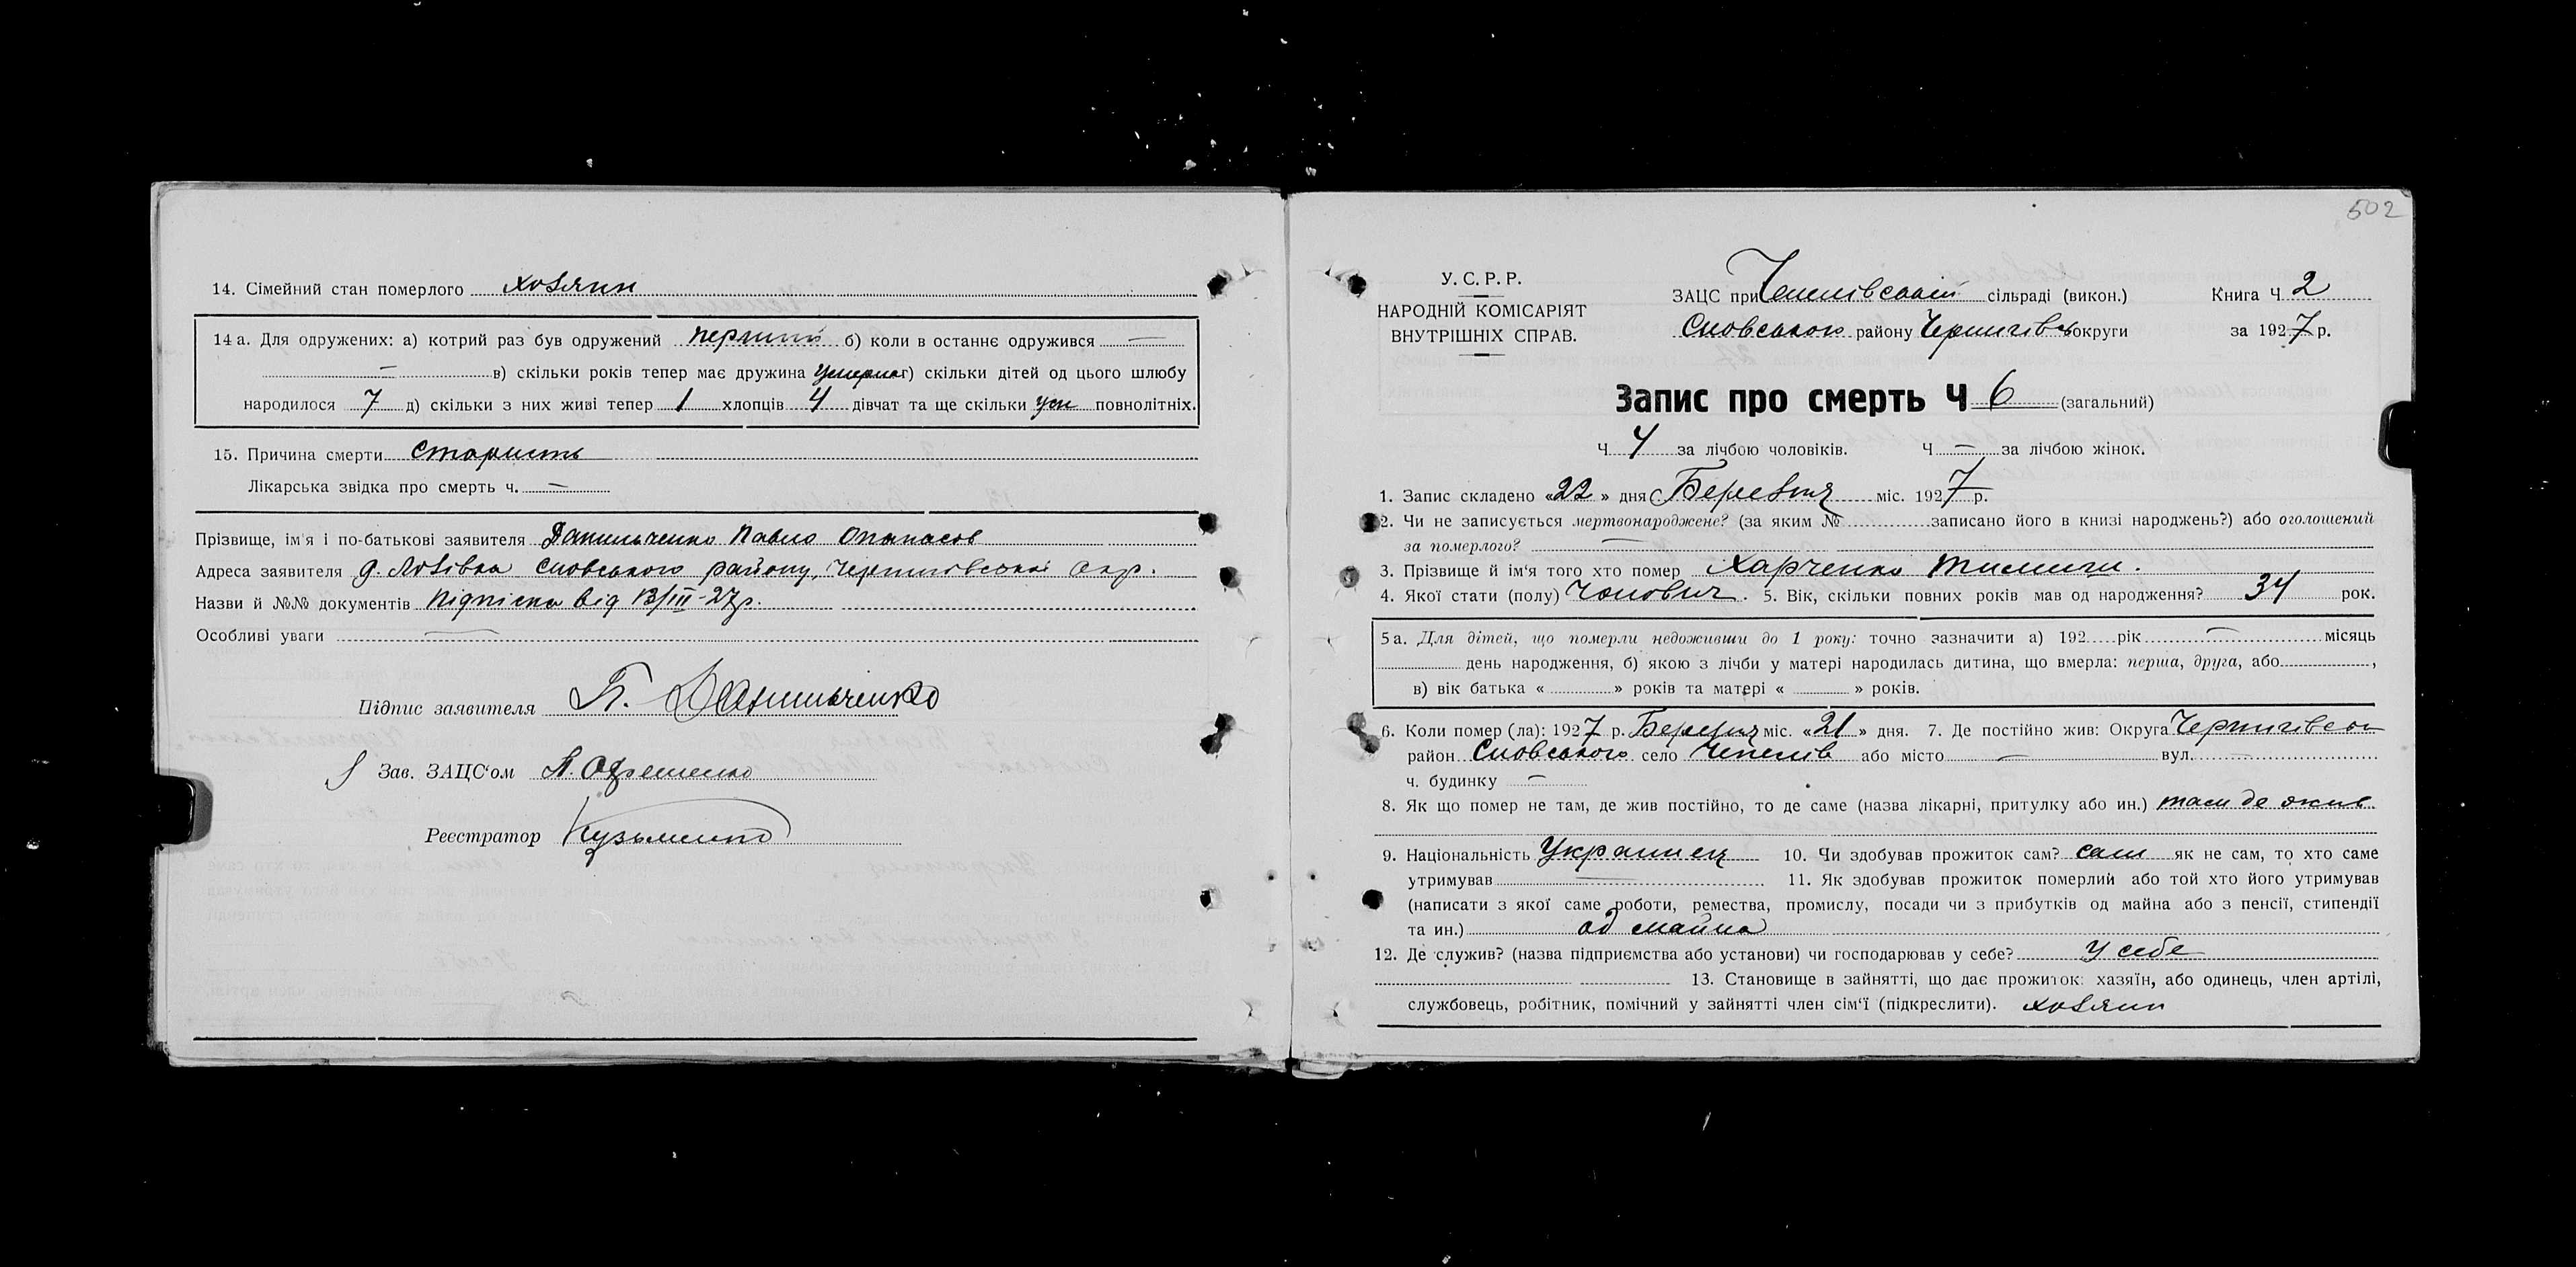 14. Сімейний стан померлого хозяин
14 а. Для одружених: а) котрий раз був одружений первий б) коли в останнє одружився —
— в) скільки років тепер має дружина умерла г) скільки дітей од цього шлюбу
народилося 7 д) скільки з них живі тепер 1 хлопців 4 дівчат та ще скільки усі повнолітніх.
15. Причина смерти старисть
Лікарська звідка про смерть ч. —
Прізвище, ім'я і по-батькові заявителя Данильченко Павло Опанасов
Адреса заявителя д. Лозівка Сновського району, Чернигівської Окр.
Назви й №№ документів Підписка від 13/III-27р.
Особливі уваги —
Підпис заявителя П. Данильченко
Зав. ЗАЦС'ом
Реєстратор Кузьменко
502
У. С. Р. Р.
НАРОДНІЙ КОМІСАРІЯТ
ВНУТРІШНІХ СПРАВ.
ЗАЦС при сільраді (викон.) Книга Ч 2
Сновського району Чернигівсь округи за 1927 р.
Запис про смерть Ч 6 (загальний)
Ч 4 за лічбою чоловіків. Ч — за лічбою жінок.
1. Запис складено «22» дня Березня міс. 1927 р.
2. Чи не записується мертвонароджене? (за яким № записано його в книзі народжень?) або оголошений
за померлого? —
3. Прізвище й ім'я того хто помер Харченко
4. Якої стати (полу) Чоловіч. 5. Вік, скільки повних років мав од народження? 34 рок.
5 а. Для дітей, що померли недоживши до 1 року: точно зазначити а) 192 рік — місяць
день народження, б) якою з лічби у матері народилась дитина, що вмерла: перша, друга, або ,
в) вік батька « » років та матері « » років.
6. Коли помер (ла): 1927 р. Березня міс. «21» дня. 7. Де постійно жив: Округа Чернигівськ
район Сновського село Чепелів або місто — вул.
ч. будинку —
8. Як що помер не там, де жив постійно, то де саме (назва лікарні, притулку або ин.) там де жив
9. Національність Украинец 10. Чи здобував прожиток сам? сам як не сам, то хто саме
утримував — 11. Як здобував прожиток померлий або той хто його утримував
(написати з якої саме роботи, ремества, промислу, посади чи з прибутків од майна або з пенсії, стипендії
та ин.) од майна
12. Де служив? (назва підприємства або установи) чи господарював у себе? у себе
13. Становище в зайнятті, що дає прожиток: хазяїн, або одинець, член артілі,
службовець, робітник, помічний у зайнятті член сім'ї (підкреслити). хозяин